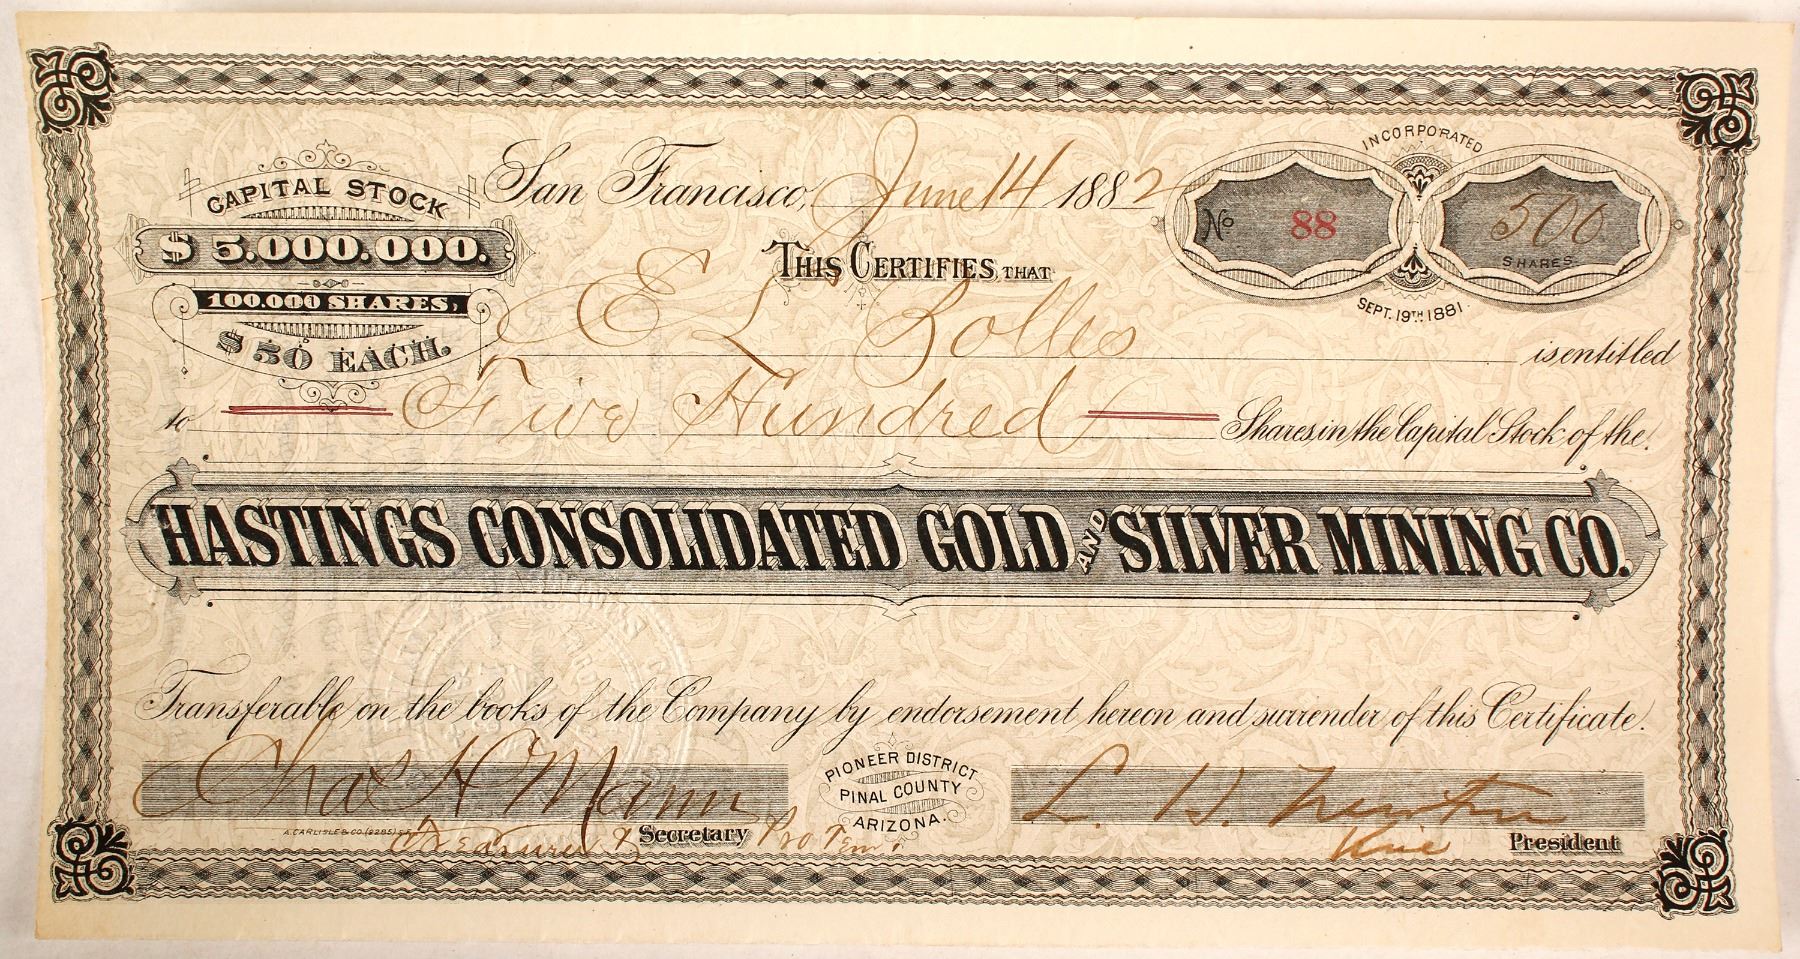 CAPITAL STOCK
$ 5.000.000.
100.000 SHARES,
$ 50 EACH.
San Francisco, June 14 1882
INCORPORATED
No 88
500
SHARES
SEPT. 19TH 1881.
THIS CERTIFIES THAT
E L Bolles is entitled
to Five Hundred Shares in the Capital Stock of the
HASTINGS CONSOLIDATED GOLD AND SILVER MINING CO.
Transferable on the books of the Company by endorsement hereon and surrender of this Certificate.
Chas H Mann
PIONEER DISTRICT
PINAL COUNTY
ARIZONA.
L. H. Newton
A. CARLISLE & CO. (9285) S.F.
Treasurer & Secretary Pro Tem.
Vice President